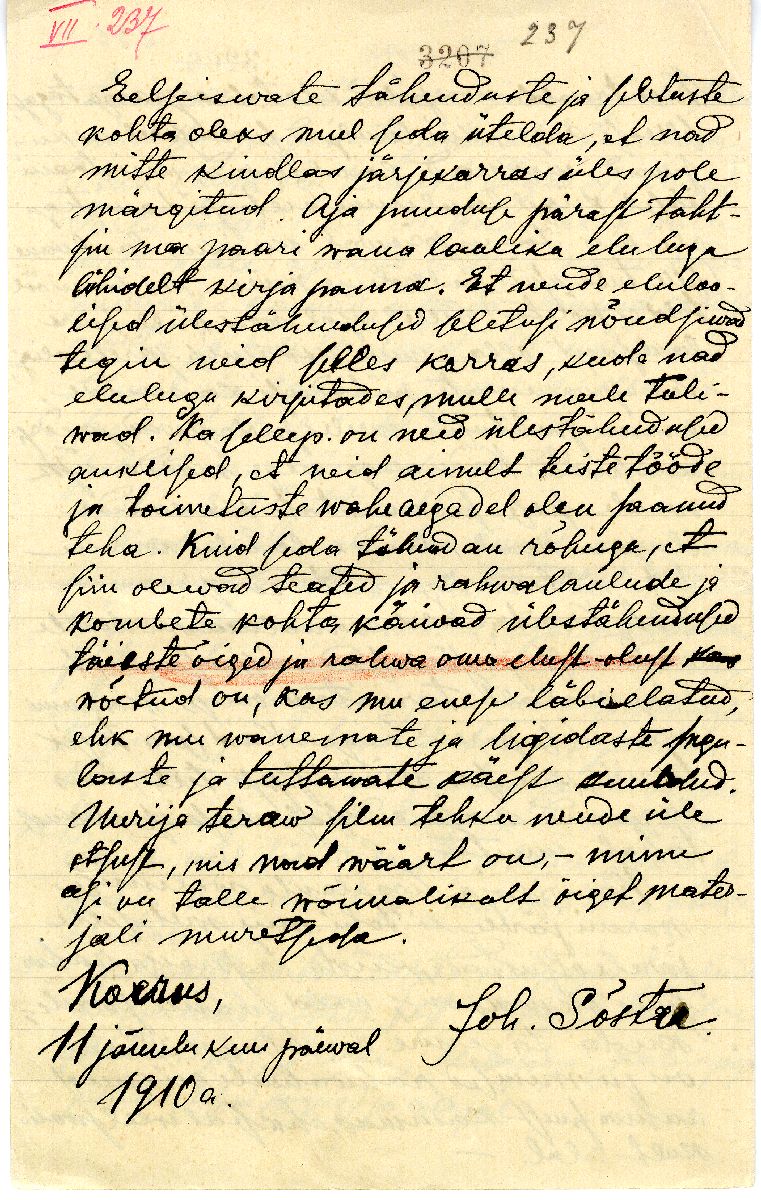 VII. 237
3207 237
Eelseiswate tähenduste ja seletuste
kohta oleks mul seda ütelda, et nad
mitte kindlas järjekorras üles pole
märgitud. Aja puuduse pärast taht-
sin ma paari wana lauliku elulugu
lühidelt kirja panna. Et nende eluloo-
lised ülestähendused seletusi nõudsiwad
tegin neid selles korras, kuda nad
elulugu kirjutades, mulle meele tuli-
wad. Ka sellep. on need ülestähendused
auklised, et neid ainult teiste tööde
ja toimetuste waheaegadel olen saanud
teha. Kuid seda tähendan rõhuga, et
siin olewad teated ja rahwalaulude ja
kombete kohta käiwad ülestähendused
täieste õiged ja rahwa oma elust-olust kas
wõetud on, kas mu enese läbielatud,
ehk mu wanemate ja ligidaste sugu-
laste ja tuttawate käest kuuldud.
Uurija teraw silm tehku nende üle
otsust, mis nad wäärt on, - minu
asi on talle wõimalikult õiget mater-
jali muretseda.
Koerus,
Joh. Sõster.
11 jõuulu kuu päewal
1910 a.